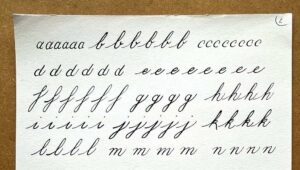 2
aaaaaa bbbbbb cccccccc
dddddd eeeeeee
ffffff gggg hhhh
iiiii jjjjj kkkk
llll mmmm nnnn